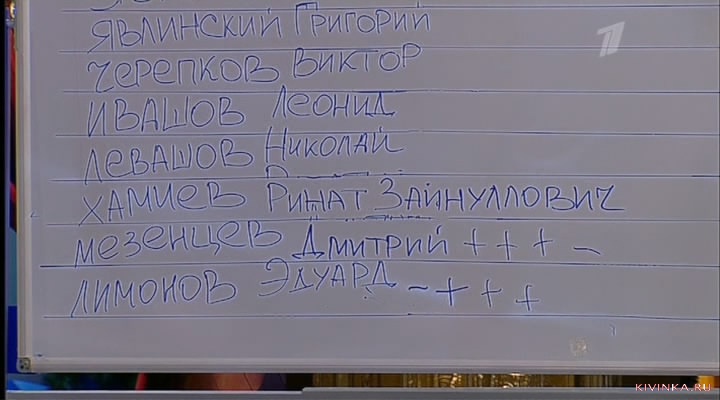 ЯВЛИНСКИЙ ГРИГОРИЙ
ЧЕРЕПКОВ ВИКТОР
ИВАШОВ ЛЕОНИД
ЛЕВАШОВ НИКОЛАЙ
ХАМИЕВ РИНАТ ЗАЙНУЛЛОВИЧ
МЕЗЕНЦЕВ ДМИТРИЙ + + + –
ЛИМОНОВ ЭДУАРД – + + +
KIVINKA.RU